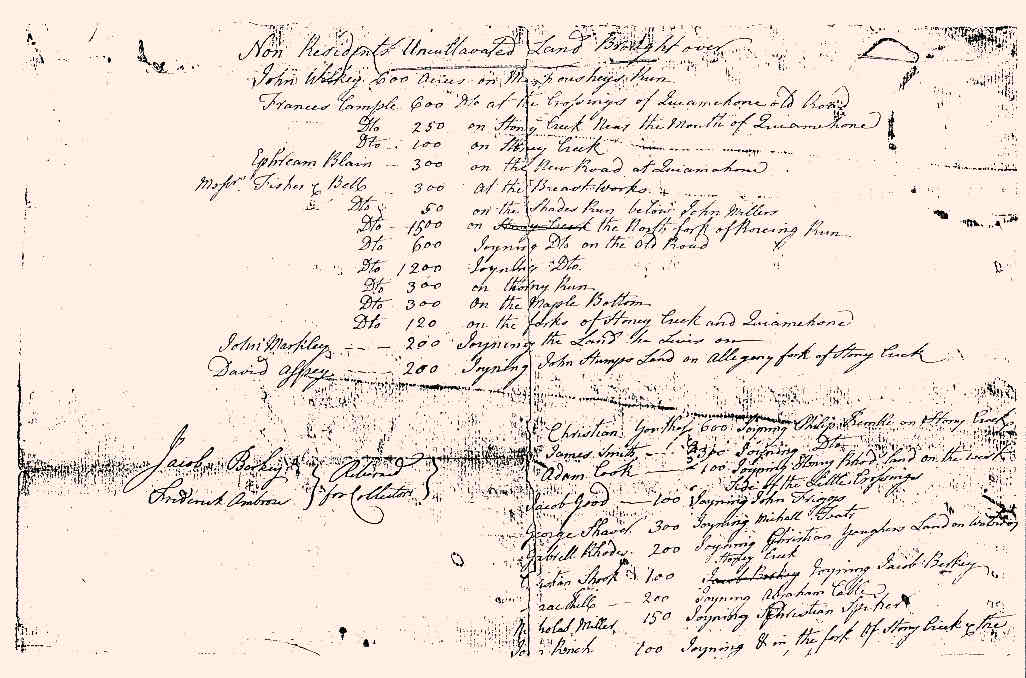 Non Residents Uncultavated Land Brought over
John Wilkey 600 acres on Run
Frances Cample 600 Dto at the Crossings of Quiamehone old Road
Dto 250 on Stony Creek Near the Mouth of Quiamehone
Dto 100 on Stoney Creek
Ephream Blain -- 300 on the New Road at Quiamahone
Messrs Fisher & Bell - 300 at the Breast Works
Dto 50 on the Shades Run below John Millers
Dto - 1500 on Stony Creek the North fork of Roreing Run
Dto 600 Joyning Dto on the Old Road
Dto 1200 Joyning Dto
Dto 300 on thorny Run
Dto 300 on the Maple Bottom
Dto 120 on the forks of Stoney Creek and Quiamehone
John Markley --- 200 Joyning the Land he Livis on
David 200 Joyning John Stumps Land on Allegeny fork of Stony Creek
Jacob Berkey
Frederick Ambrous
Retur'd for Collectors
Christian 600 Joyning Philip Kemble on Stony Creek
James Smith Joyning Dto
Adam Cook 100 Joyning Stony Land on the west
Side of the Little Crossings
Jacob Good -- 100 Joyning John Friggs
George Shaver 300 Joyning Michall
Gabrell Rhodes 200 Joyning Christian Land on
Stoney Creek
Shook 100 Jacob Berkey Joyning Jacob Berkey
200 Joyning Abraham Cable
Miller 150 Joyning Christian Spiker
100 Joyning & in the fork of Stony Creek & the